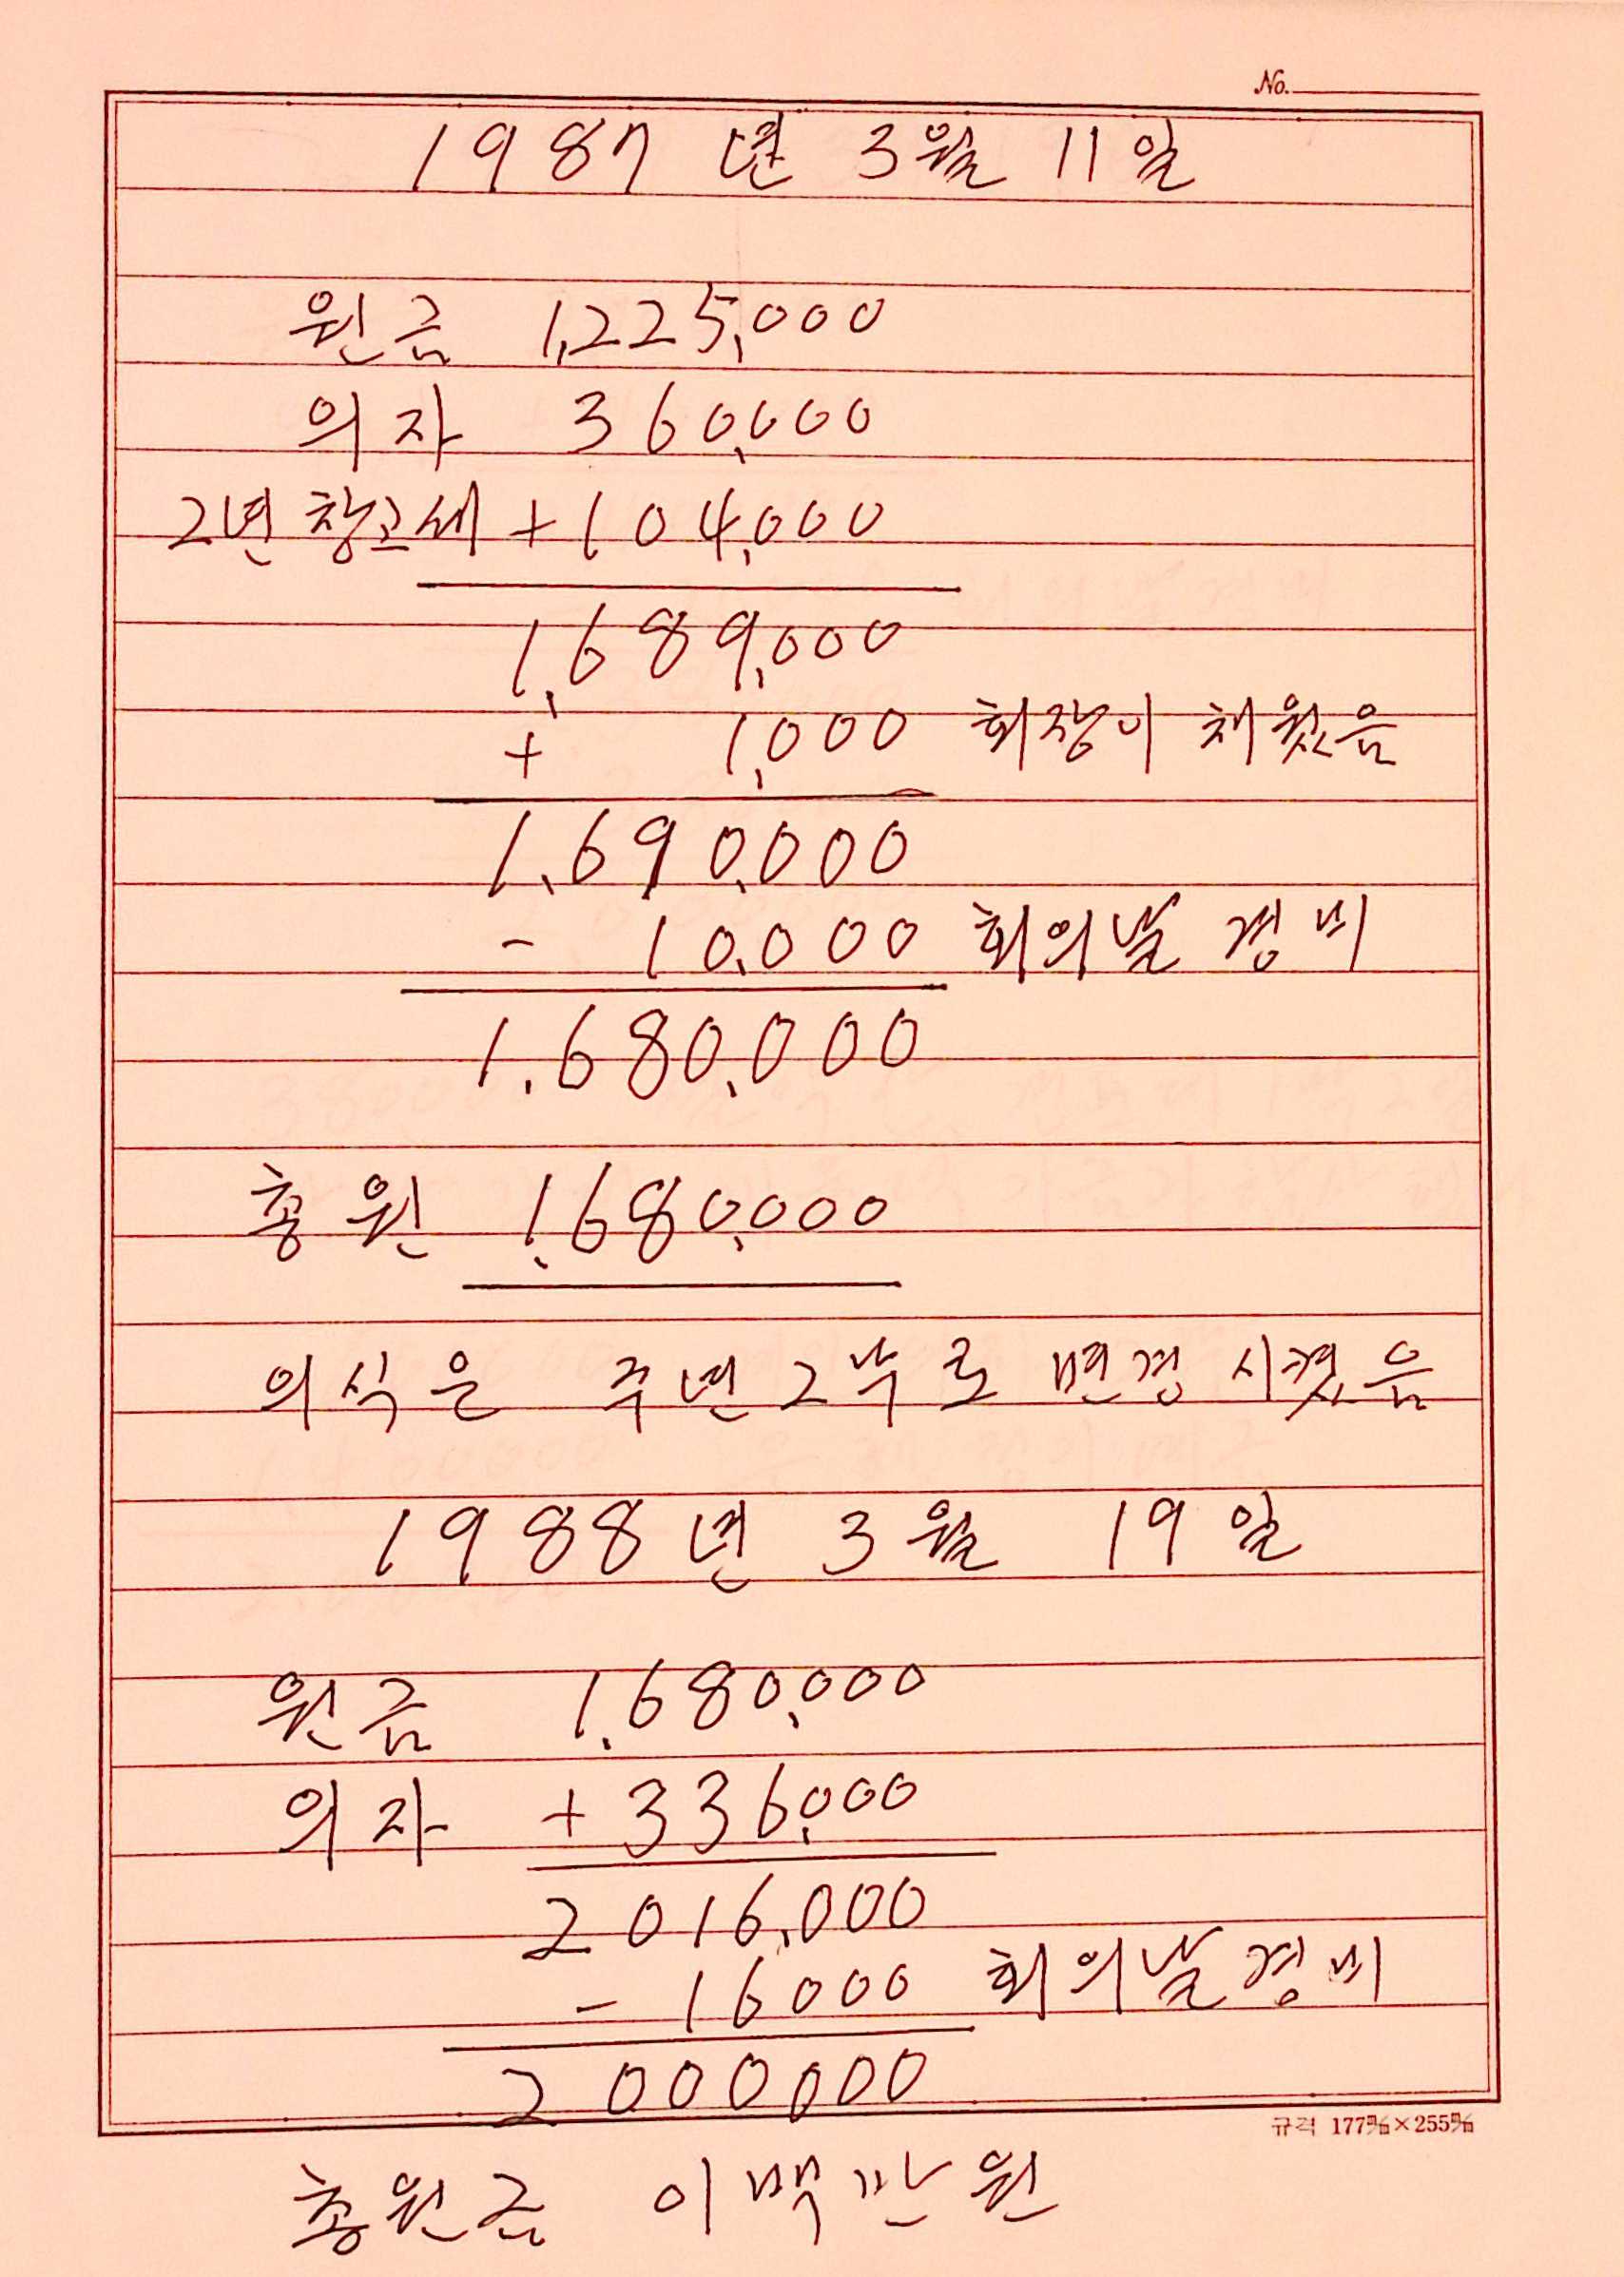 No.
1987년 3월 11일
원금 1,225,000
의자 360,000
2년 창고세 +104,000
1,689,000
+ 1,000 회장이 채웠음
1,690,000
- 10,000 회의날 경비
1.680,000
총원 1,680,000
의식은 주년 2부로 변경 시켯음
1988년 3월 19일
원금 1.680,000
의자 +336,000
2016,000
- 16000 회의날 경비
2000000
규격 177㎜×255㎜
총원금 이백만원